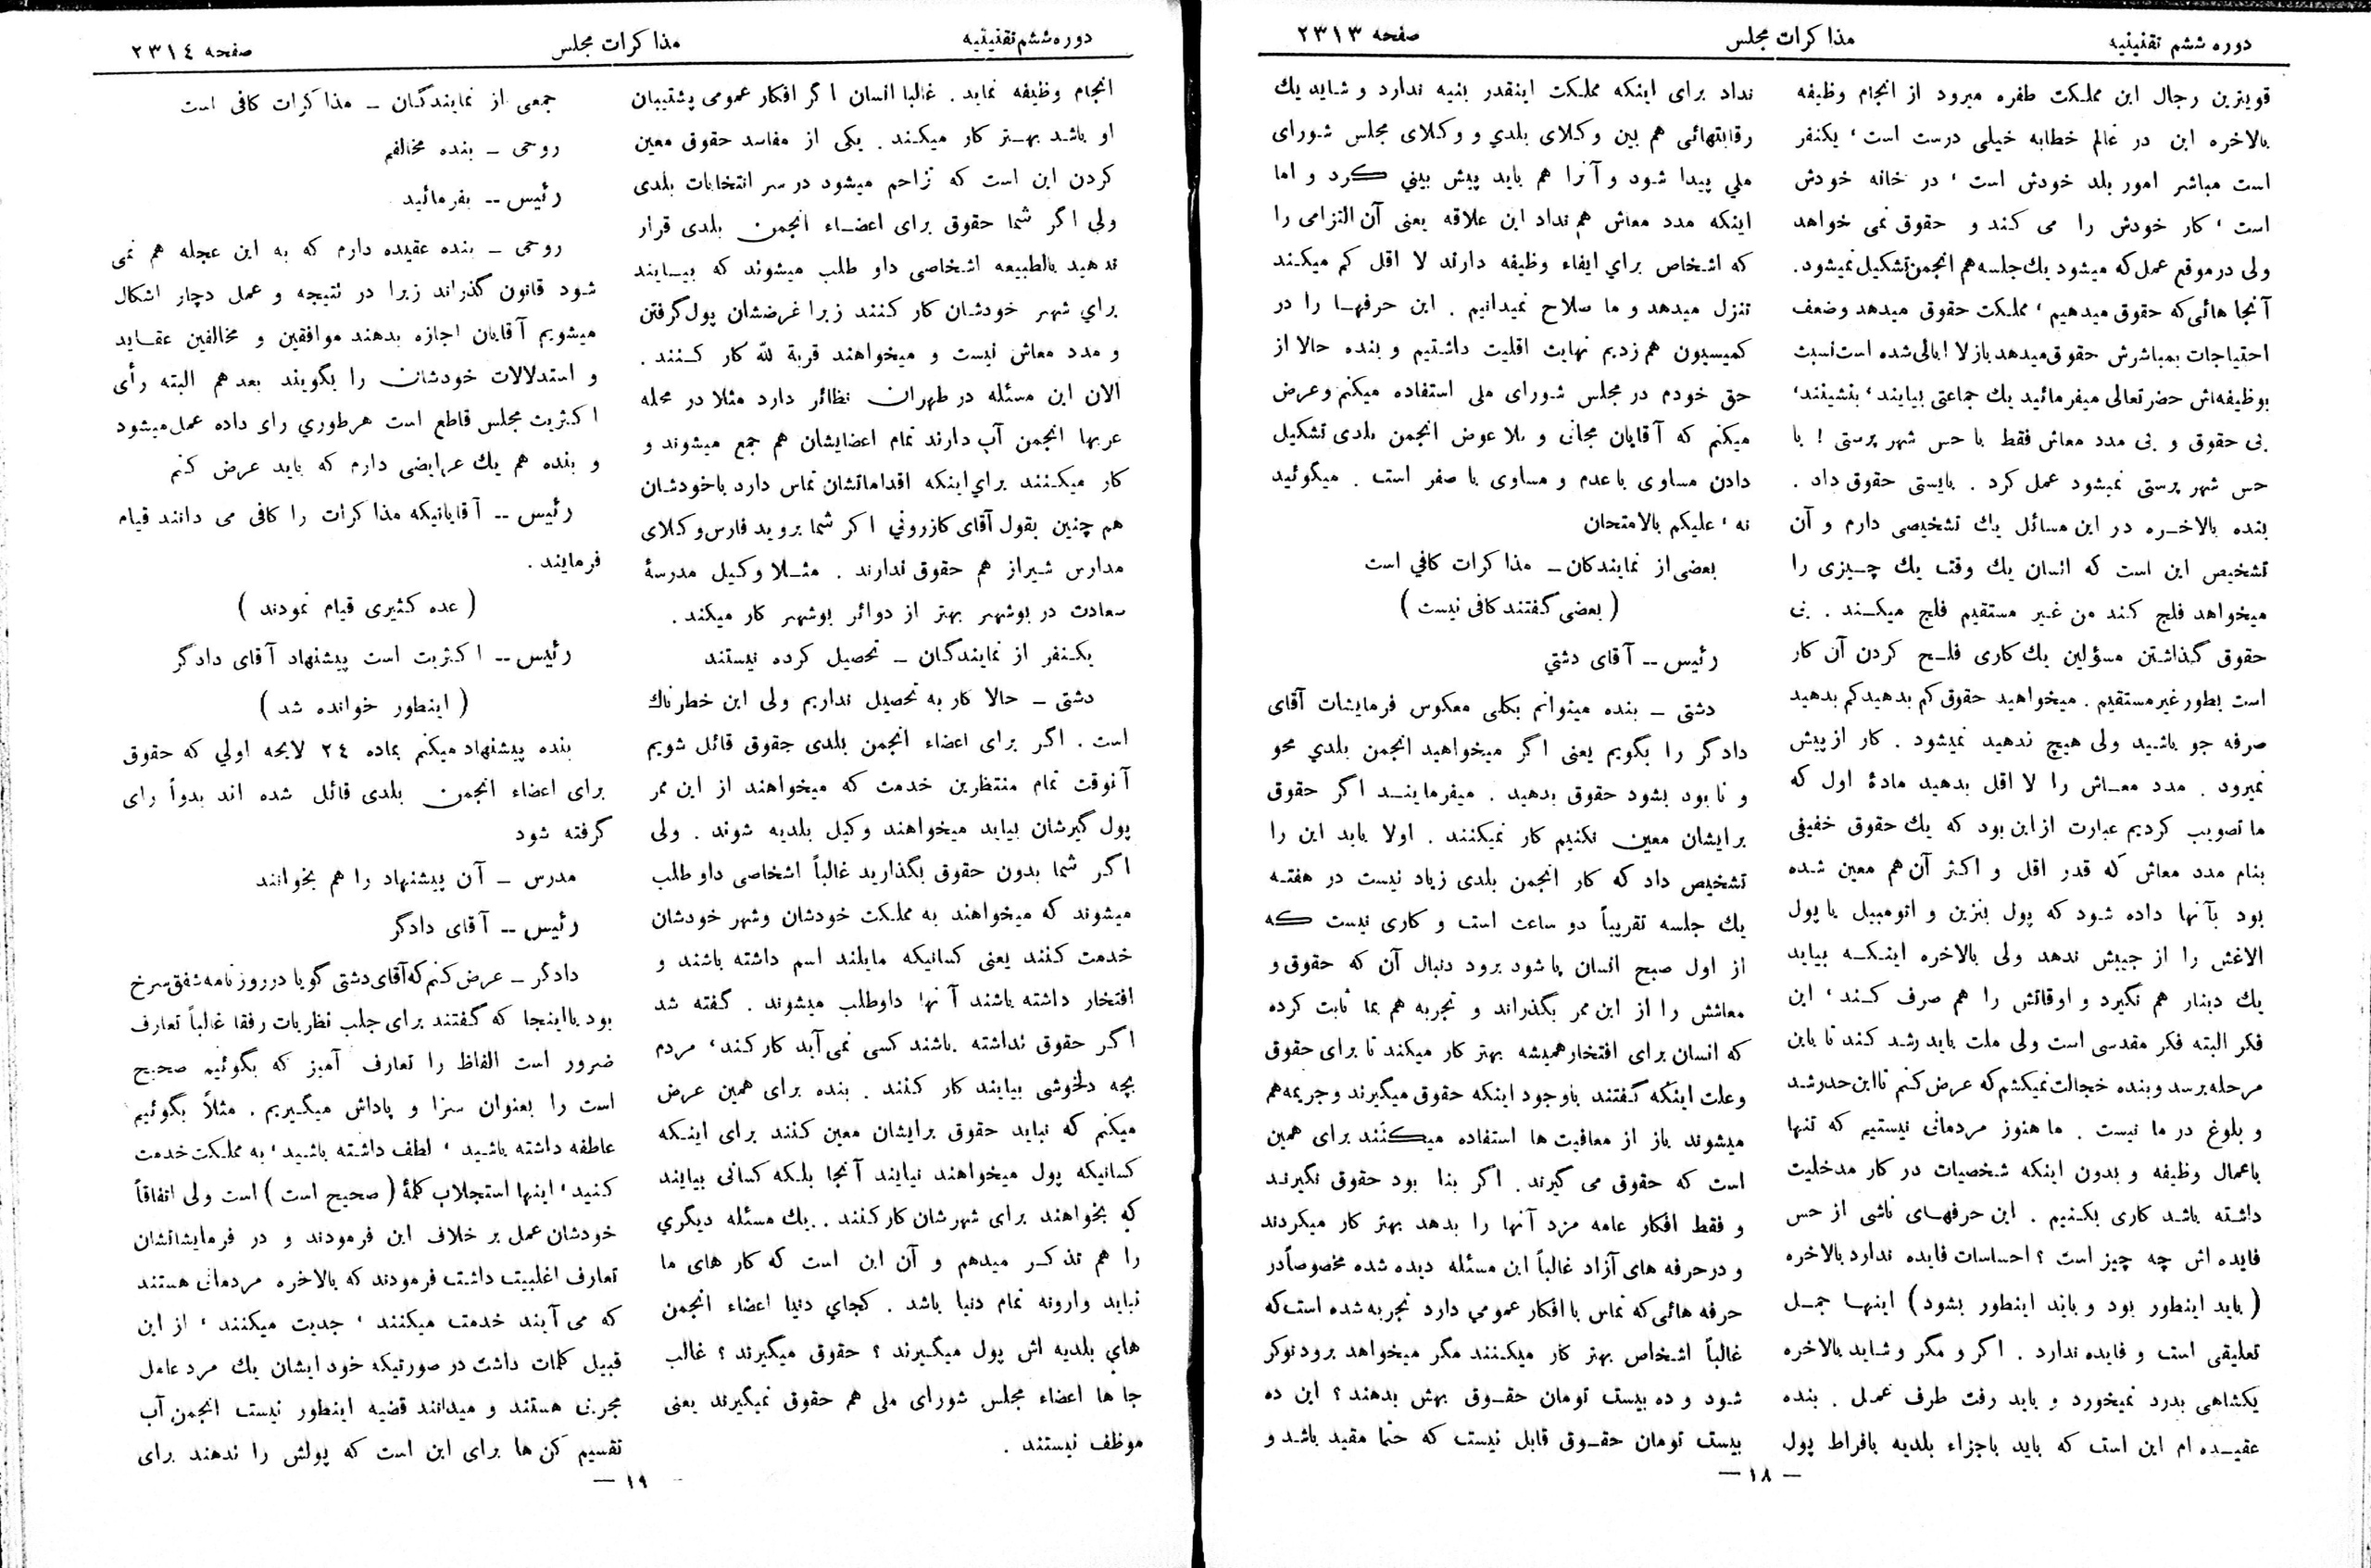 دوره ششم تقنینیه
مذاکرات مجلس
صفحه ۲۳۱۳
قویترین رجال این مملکت طفره میرود از انجام وظیفه
بالاخره این در عالم خطابه خیلی درست است ، یکنفر
است مباشر امور بلد خودش است ، در خانه خودش
است ، کار خودش را می کند و حقوق نمی خواهد
ولی در موقع عمل که میشود یك جلسه هم انجمن تشکیل نمیشود.
آنجا هائی که حقوق میدهیم ، مملکت حقوق میدهد وضعف
احتیاجات بمباشرش حقوق میدهد باز لا ابالی شده است نسبت
بوظیفه‌اش حضرتعالی میفرمائید یك جماعتی بیایند ، بنشینند ،
بی حقوق و بی مدد معاش فقط با حس شهر پرستی ! با
حس شهر پرستی نمیشود عمل کرد . بایستی حقوق داد .
بنده بالاخره در این مسائل یك تشخیصی دارم و آن
تشخیص این است که انسان یك وقت یك چیزی را
میخواهد فلج کند من غیر مستقیم فلج میکند . بی
حقوق گذاشتن مسؤلین یك کاری فلج کردن آن کار
است بطور غیر مستقیم . میخواهید حقوق کم بدهید کم بدهید
صرفه جو باشید ولی هیچ ندهید نمیشود . کار از پیش
نمیرود . مدد معاش را لا اقل بدهید مادهٔ اول که
ما تصویب کردیم عبارت از این بود که یك حقوق خفیفی
بنام مدد معاش که قدر اقل و اکثر آن هم معین شده
بود بآنها داده شود که پول بنزین و اتومبیل یا پول
الاغش را از جیبش ندهد ولی بالاخره اینکه بیاید
یك دینار هم نگیرد و اوقاتش را هم صرف کند ، این
فکر البته فکر مقدسی است ولی ملت باید رشد کند تا باین
مرحله برسد و بنده خجالت نمیکشم که عرض کنم تا این حد رشد
و بلوغ در ما نیست . ما هنوز مردمانی نیستیم که تنها
باعمال وظیفه و بدون اینکه شخصیات در کار مدخلیت
داشته باشد کاری بکنیم . این حرفهای ناشی از حس
فایده اش چه چیز است ؟ احساسات فایده ندارد بالاخره
( باید اینطور بود و باید اینطور بشود ) اینها جمل
تعلیقی است و فایده ندارد . اگر و مگر و شاید بالاخره
یکشاهی بدرد نمیخورد و باید رفت طرف عمل . بنده
عقیده ام این است که باید باجزاء بلدیه بافراط پول
نداد برای اینکه مملکت اینقدر بنیه ندارد و شاید یك
رقابتهائی هم بین وکلای بلدی و وکلای مجلس شورای
ملی پیدا شود و آنرا هم باید پیش بینی کرد و اما
اینکه مدد معاش هم نداد این علاقه یعنی آن التزامی را
که اشخاص برای ایفاء وظیفه دارند لا اقل کم میکند
تنزل میدهد و ما صلاح نمیدانیم . این حرفها را در
کمیسیون هم زدیم نهایت اقلیت داشتیم و بنده حالا از
حق خودم در مجلس شورای ملی استفاده میکنم و عرض
میکنم که آقایان مجانی و بلا عوض انجمن بلدی تشکیل
دادن مساوی با عدم و مساوی با صفر است . میگوئید
نه ، علیکم بالامتحان
بعضی از نمایندکان ـ مذاکرات کافی است
( بعضی گفتند کافی نیست )
رئیس -- آقای دشتی
دشتی ـ بنده میتوانم بکلی معکوس فرمایشات آقای
دادگر را بگویم یعنی اگر میخواهید انجمن بلدی محو
و نابود بشود حقوق بدهید . میفرمایند اگر حقوق
برایشان معین نکنیم کار نمیکنند . اولا باید این را
تشخیص داد که کار انجمن بلدی زیاد نیست در هفته
یك جلسه تقریباً دو ساعت است و کاری نیست که
از اول صبح انسان پا شود برود دنبال آن که حقوق و
معاشش را از این ممر بگذراند و تجربه هم بما ثابت کرده
که انسان برای افتخار همیشه بهتر کار میکند تا برای حقوق
و علت اینکه گفتند با وجود اینکه حقوق میگیرند و جریمه هم
میشوند باز از معافیت ها استفاده میکنند برای همین
است که حقوق می گیرند. اگر بنا بود حقوق نگیرند
و فقط افکار عامه مزد آنها را بدهد بهتر کار میکردند
و در حرفه های آزاد غالباً این مسئله دیده شده مخصوصاً در
حرفه هائی که تماس با افکار عمومی دارد تجربه شده است که
غالباً اشخاص بهتر کار میکنند مگر میخواهد برود نوکر
شود و ده بیست تومان حقوق بهش بدهند ؟ این ده
بیست تومان حقوق قابل نیست که حتما مقید باشد و
— ۱۸ —
دوره ششم تقنینیه
مذاکرات مجلس
صفحه ۲۳۱٤
انجام وظیفه نماید . غالبا انسان اگر افکار عمومی پشتیبان
او باشد بهتر کار میکند . یکی از مفاسد حقوق معین
کردن این است که تزاحم میشود در سر انتخابات بلدی
ولی اگر شما حقوق برای اعضاء انجمن بلدی قرار
ندهید بالطبیعه اشخاصی داو طلب میشوند که بیایند
برای شهر خودشان کار کنند زیرا غرضشان پول گرفتن
و مدد معاش نیست و میخواهند قربة لله کار کنند .
الان این مسئله در طهران نظائر دارد مثلا در محله
عربها انجمن آب دارند تمام اعضایشان هم جمع میشوند و
کار میکنند برای اینکه اقداماتشان تماس دارد با خودشان
هم چنین بقول آقای کازرونی اگر شما بروید فارس وکلای
مدارس شیراز هم حقوق ندارند . مثلا وکیل مدرسهٔ
سعادت در بوشهر بهتر از دوائر بوشهر کار میکند .
یکنفر از نمایندگان ـ تحصیل کرده نیستند
دشتی ـ حالا کار به تحصیل نداریم ولی این خطرناك
است . اگر برای اعضاء انجمن بلدی حقوق قائل شویم
آنوقت تمام منتظرین خدمت که میخواهند از این ممر
پول گیرشان بیاید میخواهند وکیل بلدیه شوند . ولی
اگر شما بدون حقوق بگذارید غالباً اشخاصی داو طلب
میشوند که میخواهند به مملکت خودشان و شهر خودشان
خدمت کنند یعنی کسانیکه مایلند اسم داشته باشند و
افتخار داشته باشند آنها داوطلب میشوند . گفته شد
اگر حقوق نداشته باشند کسی نمی آید کار کند ، مردم
بچه دلخوشی بیایند کار کنند . بنده برای همین عرض
میکنم که نباید حقوق برایشان معین کنند برای اینکه
کسانیکه پول میخواهند نیایند آنجا بلکه کسانی بیایند
که بخواهند برای شهرشان کار کنند . یك مسئله دیگری
را هم تذکر میدهم و آن این است که کار های ما
نباید وارونه تمام دنیا باشد . کجای دنیا اعضاء انجمن
های بلدیه اش پول میگیرند ؟ حقوق میگیرند ؟ غالب
جا ها اعضاء مجلس شورای ملی هم حقوق نمیگیرند یعنی
موظف نیستند .
جمعی از نمایندگان ـ مذاکرات کافی است
روحی ـ بنده مخالفم
رئیس -- بفرمائید
روحی ـ بنده عقیده دارم که به این عجله هم نمی
شود قانون گذراند زیرا در نتیجه و عمل دچار اشکال
میشویم آقایان اجازه بدهند موافقین و مخالفین عقاید
و استدلالات خودشان را بگویند بعد هم البته رأی
اکثریت مجلس قاطع است هر طوری رای داده عمل میشود
و بنده هم یك عرایضی دارم که باید عرض کنم
رئیس -- آقایانیکه مذاکرات را کافی می دانند قیام
فرمایند .
( عده کثیری قیام نمودند )
رئیس -- اکثریت است پیشنهاد آقای دادگر
( اینطور خوانده شد )
بنده پیشنهاد میکنم بماده ۲٤ لایحه اولی که حقوق
برای اعضاء انجمن بلدی قائل شده اند بدواً رای
گرفته شود
مدرس ـ آن پیشنهاد را هم بخوانند
رئیس -- آقای دادگر
دادگر ـ عرض کنم که آقای دشتی گویا در روزنامه شفق سرخ
بود یا اینجا که گفتند برای جلب نظریات رفقا غالباً تعارف
ضرور است الفاظ را تعارف آمیز که بگوئیم صحیح
است را بعنوان سزا و پاداش میگیریم . مثلاً بگوئیم
عاطفه داشته باشید ، لطف داشته باشید ، به مملکت خدمت
کنید ، اینها استجلاب کلمهٔ ( صحیح است ) است ولی اتفاقاً
خودشان عمل بر خلاف این فرمودند و در فرمایشاتشان
تعارف اغلبیت داشت فرمودند که بالاخره مردمانی هستند
که می آیند خدمت میکنند ، جدیت میکنند ، از این
قبیل کلمات داشت در صورتیکه خود ایشان یك مرد عامل
مجربی هستند و میدانند قضیه اینطور نیست انجمن آب
تقسیم کن ها برای این است که پولش را ندهند برای
— ۱۹ —